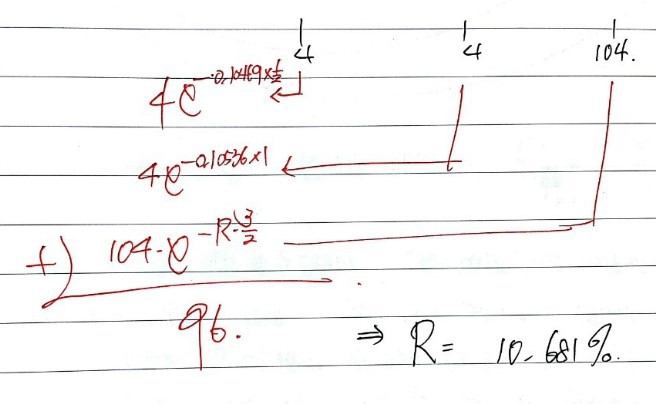 4 4 104.
4e^{-0.10469×\frac{1}{2}}
4e^{-0.10536×1}
+) 104·e^{-R·\frac{3}{2}}
96.
⇒ R = 10.681%.